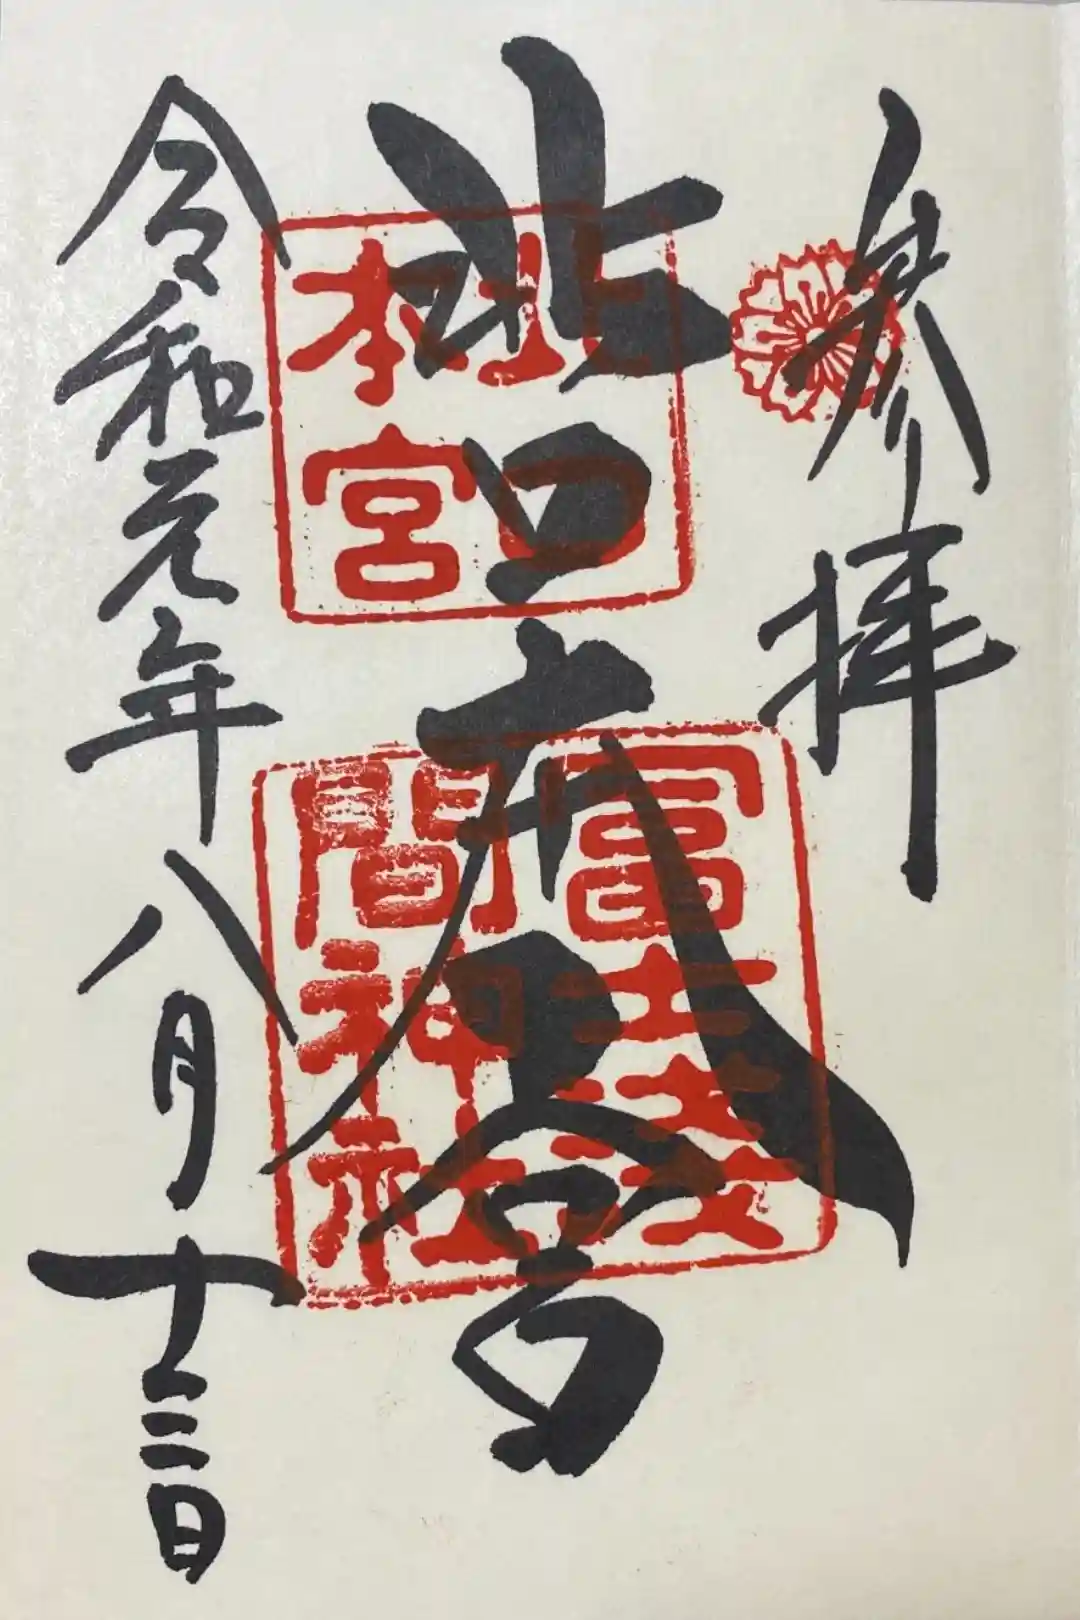 参拝
北口本宮
令和元年八月十三日
北口
本宮
冨士淺
間神社